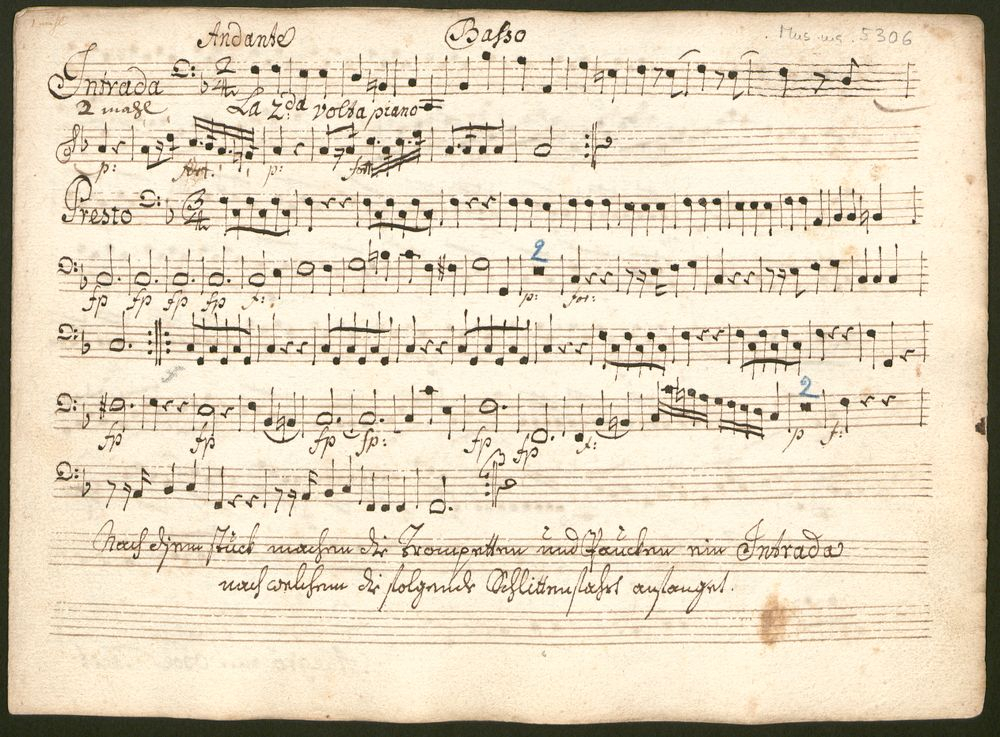 Andante Basso Mus. ms. 5306
Intrada 2/4
2 mahl La 2.da volta piano
p: fort. p: fort.
Presto 3/4
2
fp fp fp fp f: p: for:
2
fp fp fp fp: fp fp f: p f:
Nach disem stück machen die Trompetten und Paucken ein Intrada
nach welchem die folgende Schlittenfahrt anfanget.